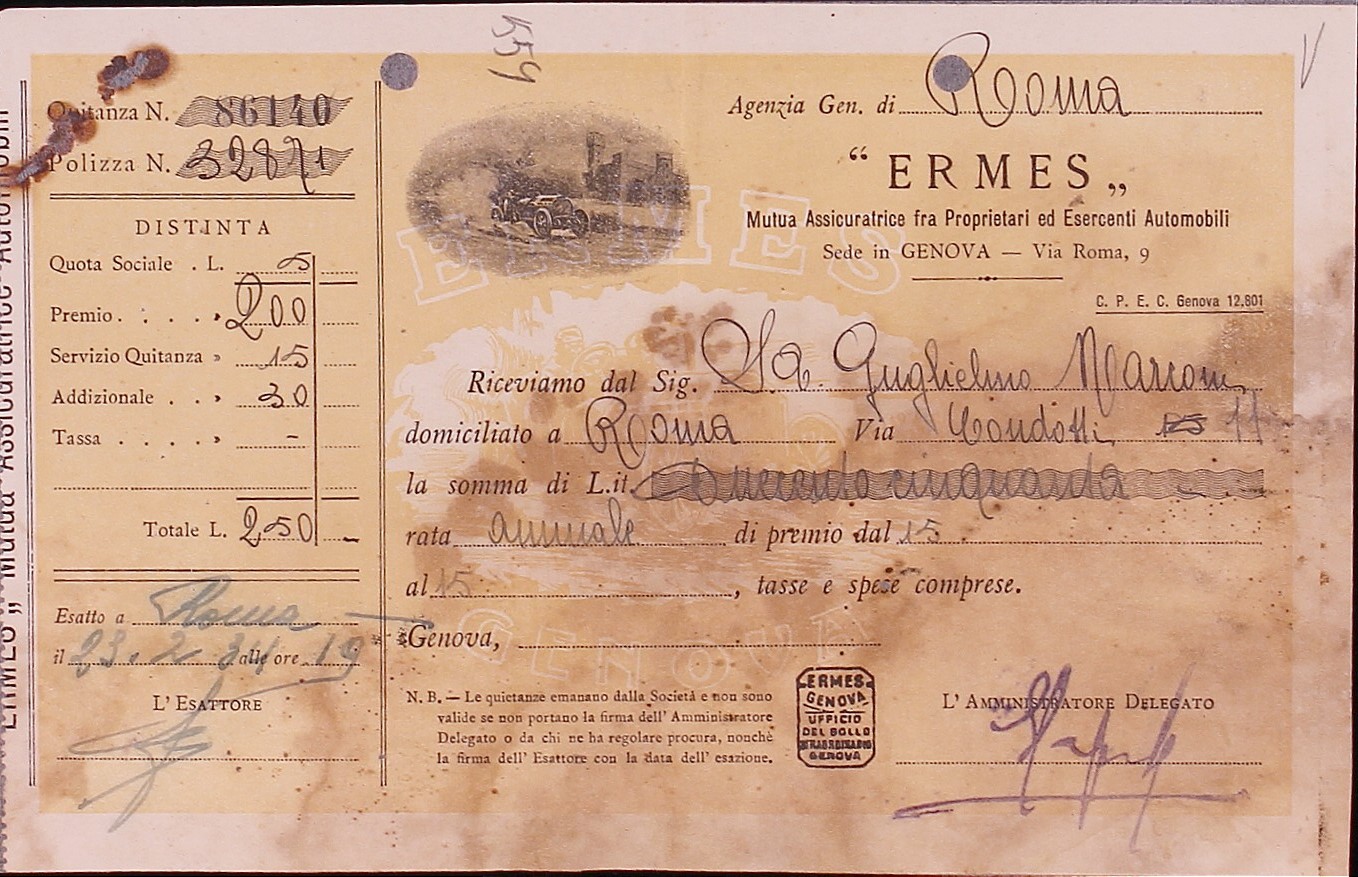 559
Quitanza N. 86140
Polizza N. 32871
DISTINTA
Quota Sociale . L. 5
Premio . . . . . » 200
Servizio Quitanza » 15
Addizionale . . . » 30
Tassa . . . . . » -
Totale L. 250
Esatto a Roma
il 23.2.34 alle ore 19
L' ESATTORE
Agenzia Gen. di Roma
“ ERMES „
Mutua Assicuratrice fra Proprietari ed Esercenti Automobili
Sede in GENOVA — Via Roma, 9
C. P. E. C. Genova 12.801
ERMES
Riceviamo dal Sig. Guglielmo Marconi
domiciliato a Roma Via Condotti 11
la somma di L.it. Duecento cinquanta
rata annuale di premio dal 15
al 15 , tasse e spese comprese.
Genova,
GENOVA
N. B. — Le quietanze emanano dalla Società e non sono
valide se non portano la firma dell' Amministratore
Delegato o da chi ne ha regolare procura, nonchè
la firma dell' Esattore con la data dell' esazione.
ERMES
GENOVA
UFFICIO
DEL BOLLO
STRAORDINARIO
GENOVA
L' AMMINISTRATORE DELEGATO
"ERMES „ Mutua Assicuratrice Automobili